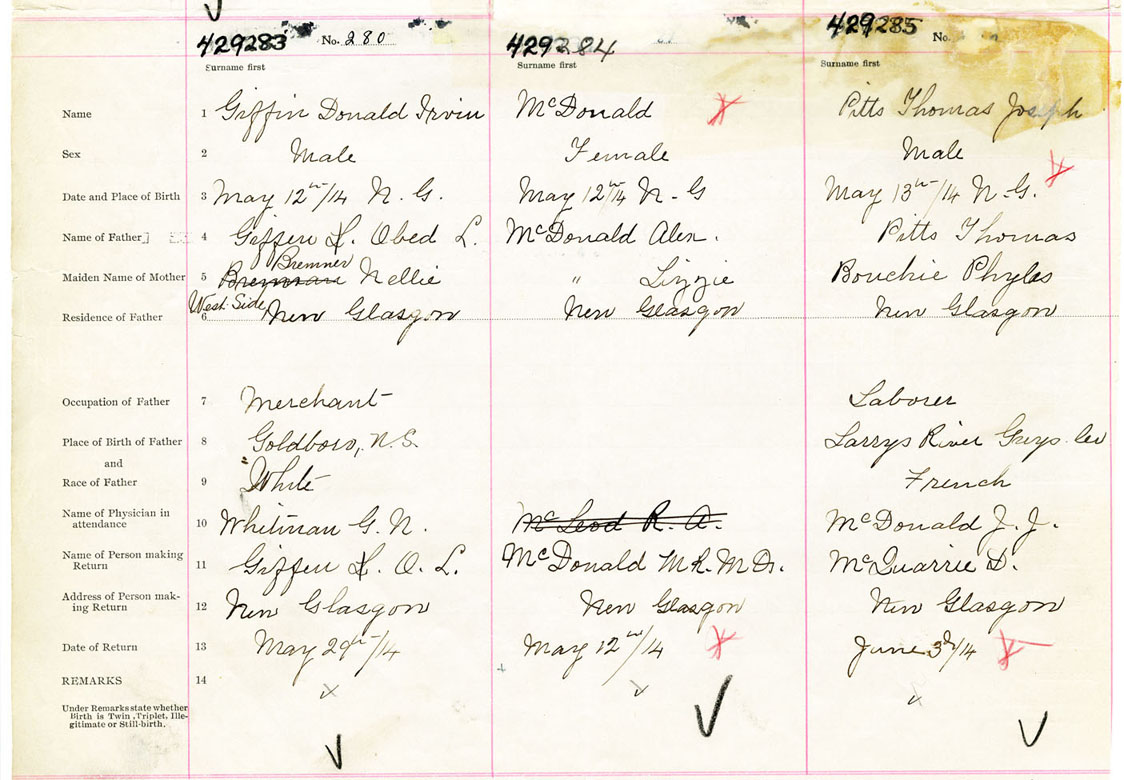 429283 No. 280 429284 429285 No.
Surname first Surname first Surname first
Name 1 Giffin Donald Irvin McDonald Pitts Thomas Joseph
Sex 2 Male Female Male
Date and Place of Birth 3 May 12th/14 N. G. May 12th/14 N. G May 13th/14 N. G.
Name of Father 4 Giffen L. Obed L. McDonald Alex. Pitts Thomas
Bremner
Maiden Name of Mother 5 Nellie " Lizzie Bouchie Phyles
West Side
Residence of Father 6 New Glasgow New Glasgow New Glasgow
Occupation of Father 7 Merchant Laborer
Place of Birth of Father 8 Goldboro, N.S. Larrys River Guys. Co
and
Race of Father 9 White French
Name of Physician in
attendance 10 Whitman G. N. McLeod R. A. McDonald J. J.
Name of Person making
Return 11 Giffen O. L. McDonald McQuarrie D.
Address of Person mak-
ing Return 12 New Glasgow New Glasgow New Glasgow
Date of Return 13 May 29th/14 May 12th/14 June 3d/14
REMARKS 14
Under Remarks state whether
Birth is Twin, Triplet, Ille-
gitimate or Still-birth.